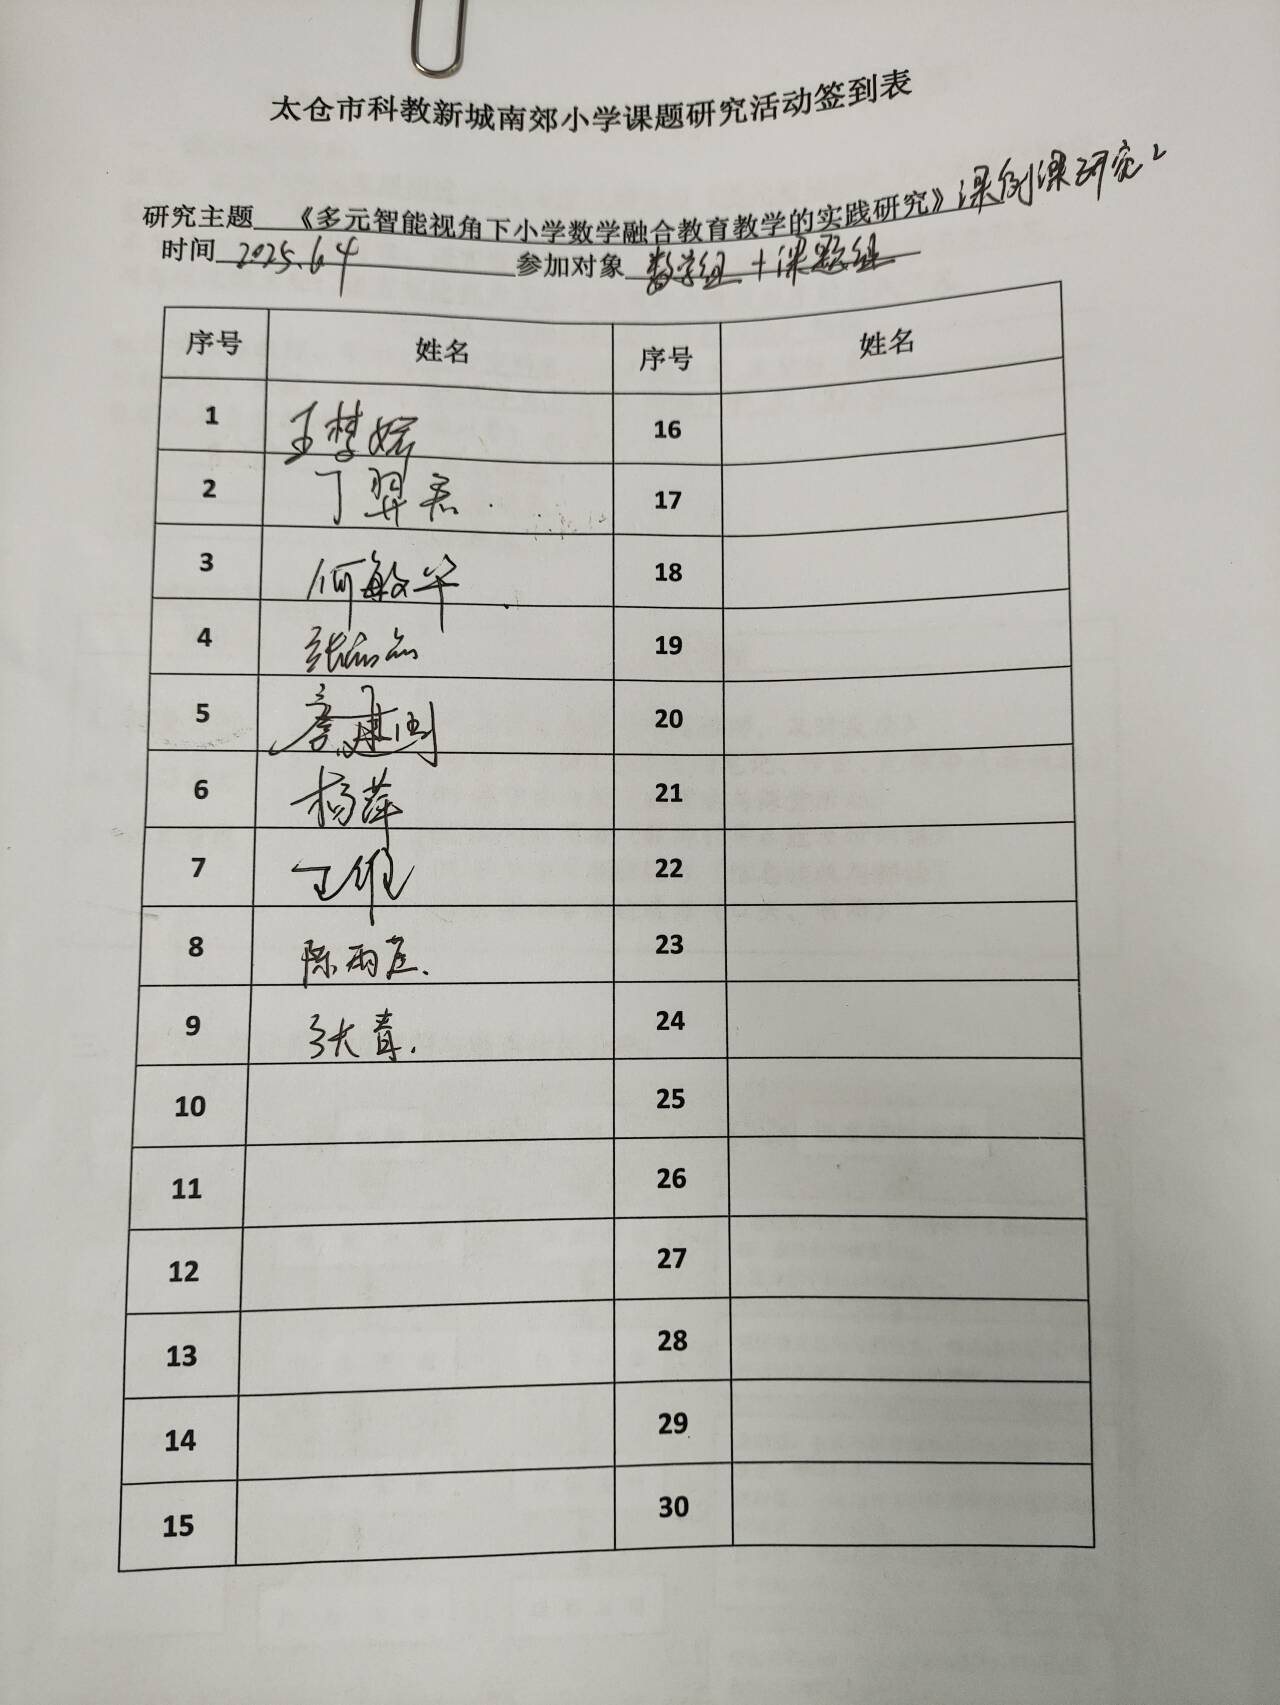 太仓市科教新城南郊小学课题研究活动签到表
研究主题 《多元智能视角下小学数学融合教育教学的实践研究》课例课研究2
时间 2025.6.4 参加对象 数学组+课题组
序号 姓名 序号 姓名
1 王梦婼 16
2 丁羿君 17
3 何敏华 18
4 张 19
5 唐建刚 20
6 杨萍 21
7 王维 22
8 陈雨 23
9 张青. 24
10 25
11 26
12 27
13 28
14 29
15 30